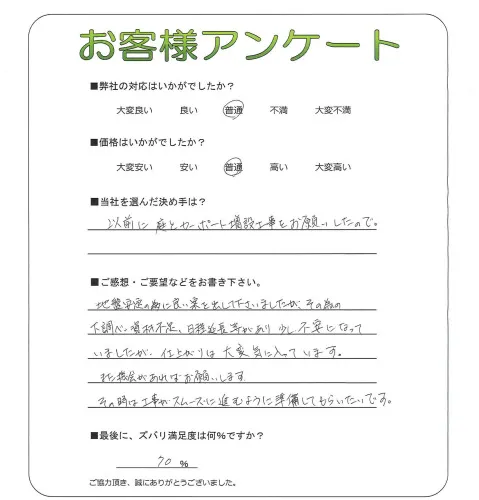 お客様アンケート
■弊社の対応はいかがでしたか?
大変良い 良い 普通 不満 大変不満
■価格はいかがでしたか?
大変安い 安い 普通 高い 大変高い
■当社を選んだ決め手は?
以前に庭とカーポート増設工事をお願いしたので。
■ご感想・ご要望などをお書き下さい。
地盤安定の為に良い案を出して下さいましたが、その為の
下調べ、資材不足、日程延長等があり少し不安になって
いましたが、仕上がりは大変気に入っています。
また機会があればお願いします
その時は工事がスムーズに進むように準備してもらいたいです。
■最後に、ズバリ満足度は何%ですか?
70 %
ご協力頂き、誠にありがとうございました。